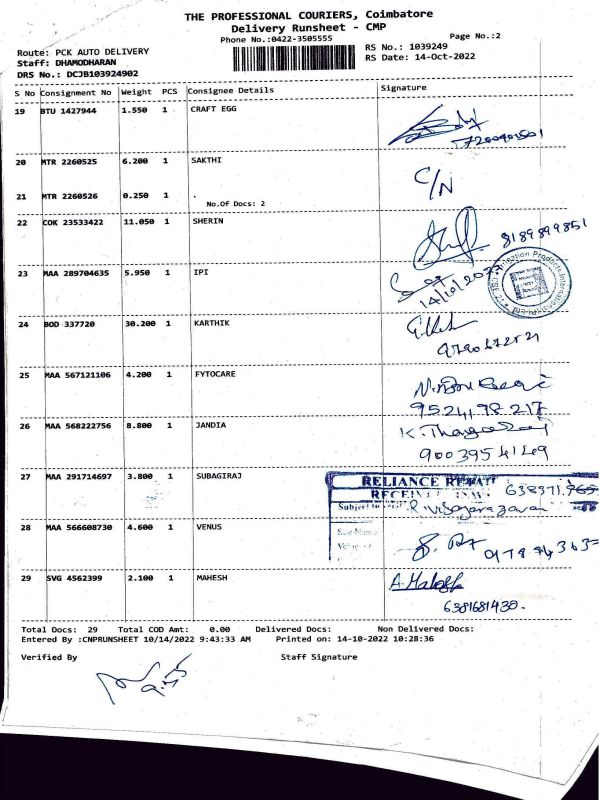 THE PROFESSIONAL COURIERS, Coimbatore
Delivery Runsheet - CMP
Phone No.:0422-3505555
Page No.:2
Route: PCK AUTO DELIVERY
RS No.: 1039249
Staff: DHAMODHARAN
RS Date: 14-Oct-2022
DRS No.: DCJB103924902
S No Consignment No Weight PCS Consignee Details Signature
19 BTU 1427944 1.550 1 CRAFT EGG
20 MTR 2260525 6.200 1 SAKTHI
C/N
21 MTR 2260526 0.250 1 .
No.Of Docs: 2
22 COK 23533422 11.050 1 SHERIN
8189899851
23 MAA 289704635 5.950 1 IPI
14/10/2022
24 BOD 337720 30.200 1 KARTHIK
25 MAA 567121106 4.200 1 FYTOCARE
9524198217
26 MAA 568222756 8.800 1 JANDIA
K. Thangaraj
9003954149
27 MAA 291714697 3.800 1 SUBAGIRAJ
RELIANCE
638371765
Subject to
28 MAA 566608730 4.600 1 VENUS
29 SVG 4562399 2.100 1 MAHESH
6381681430.
Total Docs: 29 Total COD Amt: 0.00 Delivered Docs: Non Delivered Docs:
Entered By :CNPRUNSHEET 10/14/2022 9:43:33 AM Printed on: 14-10-2022 10:28:36
Verified By Staff Signature